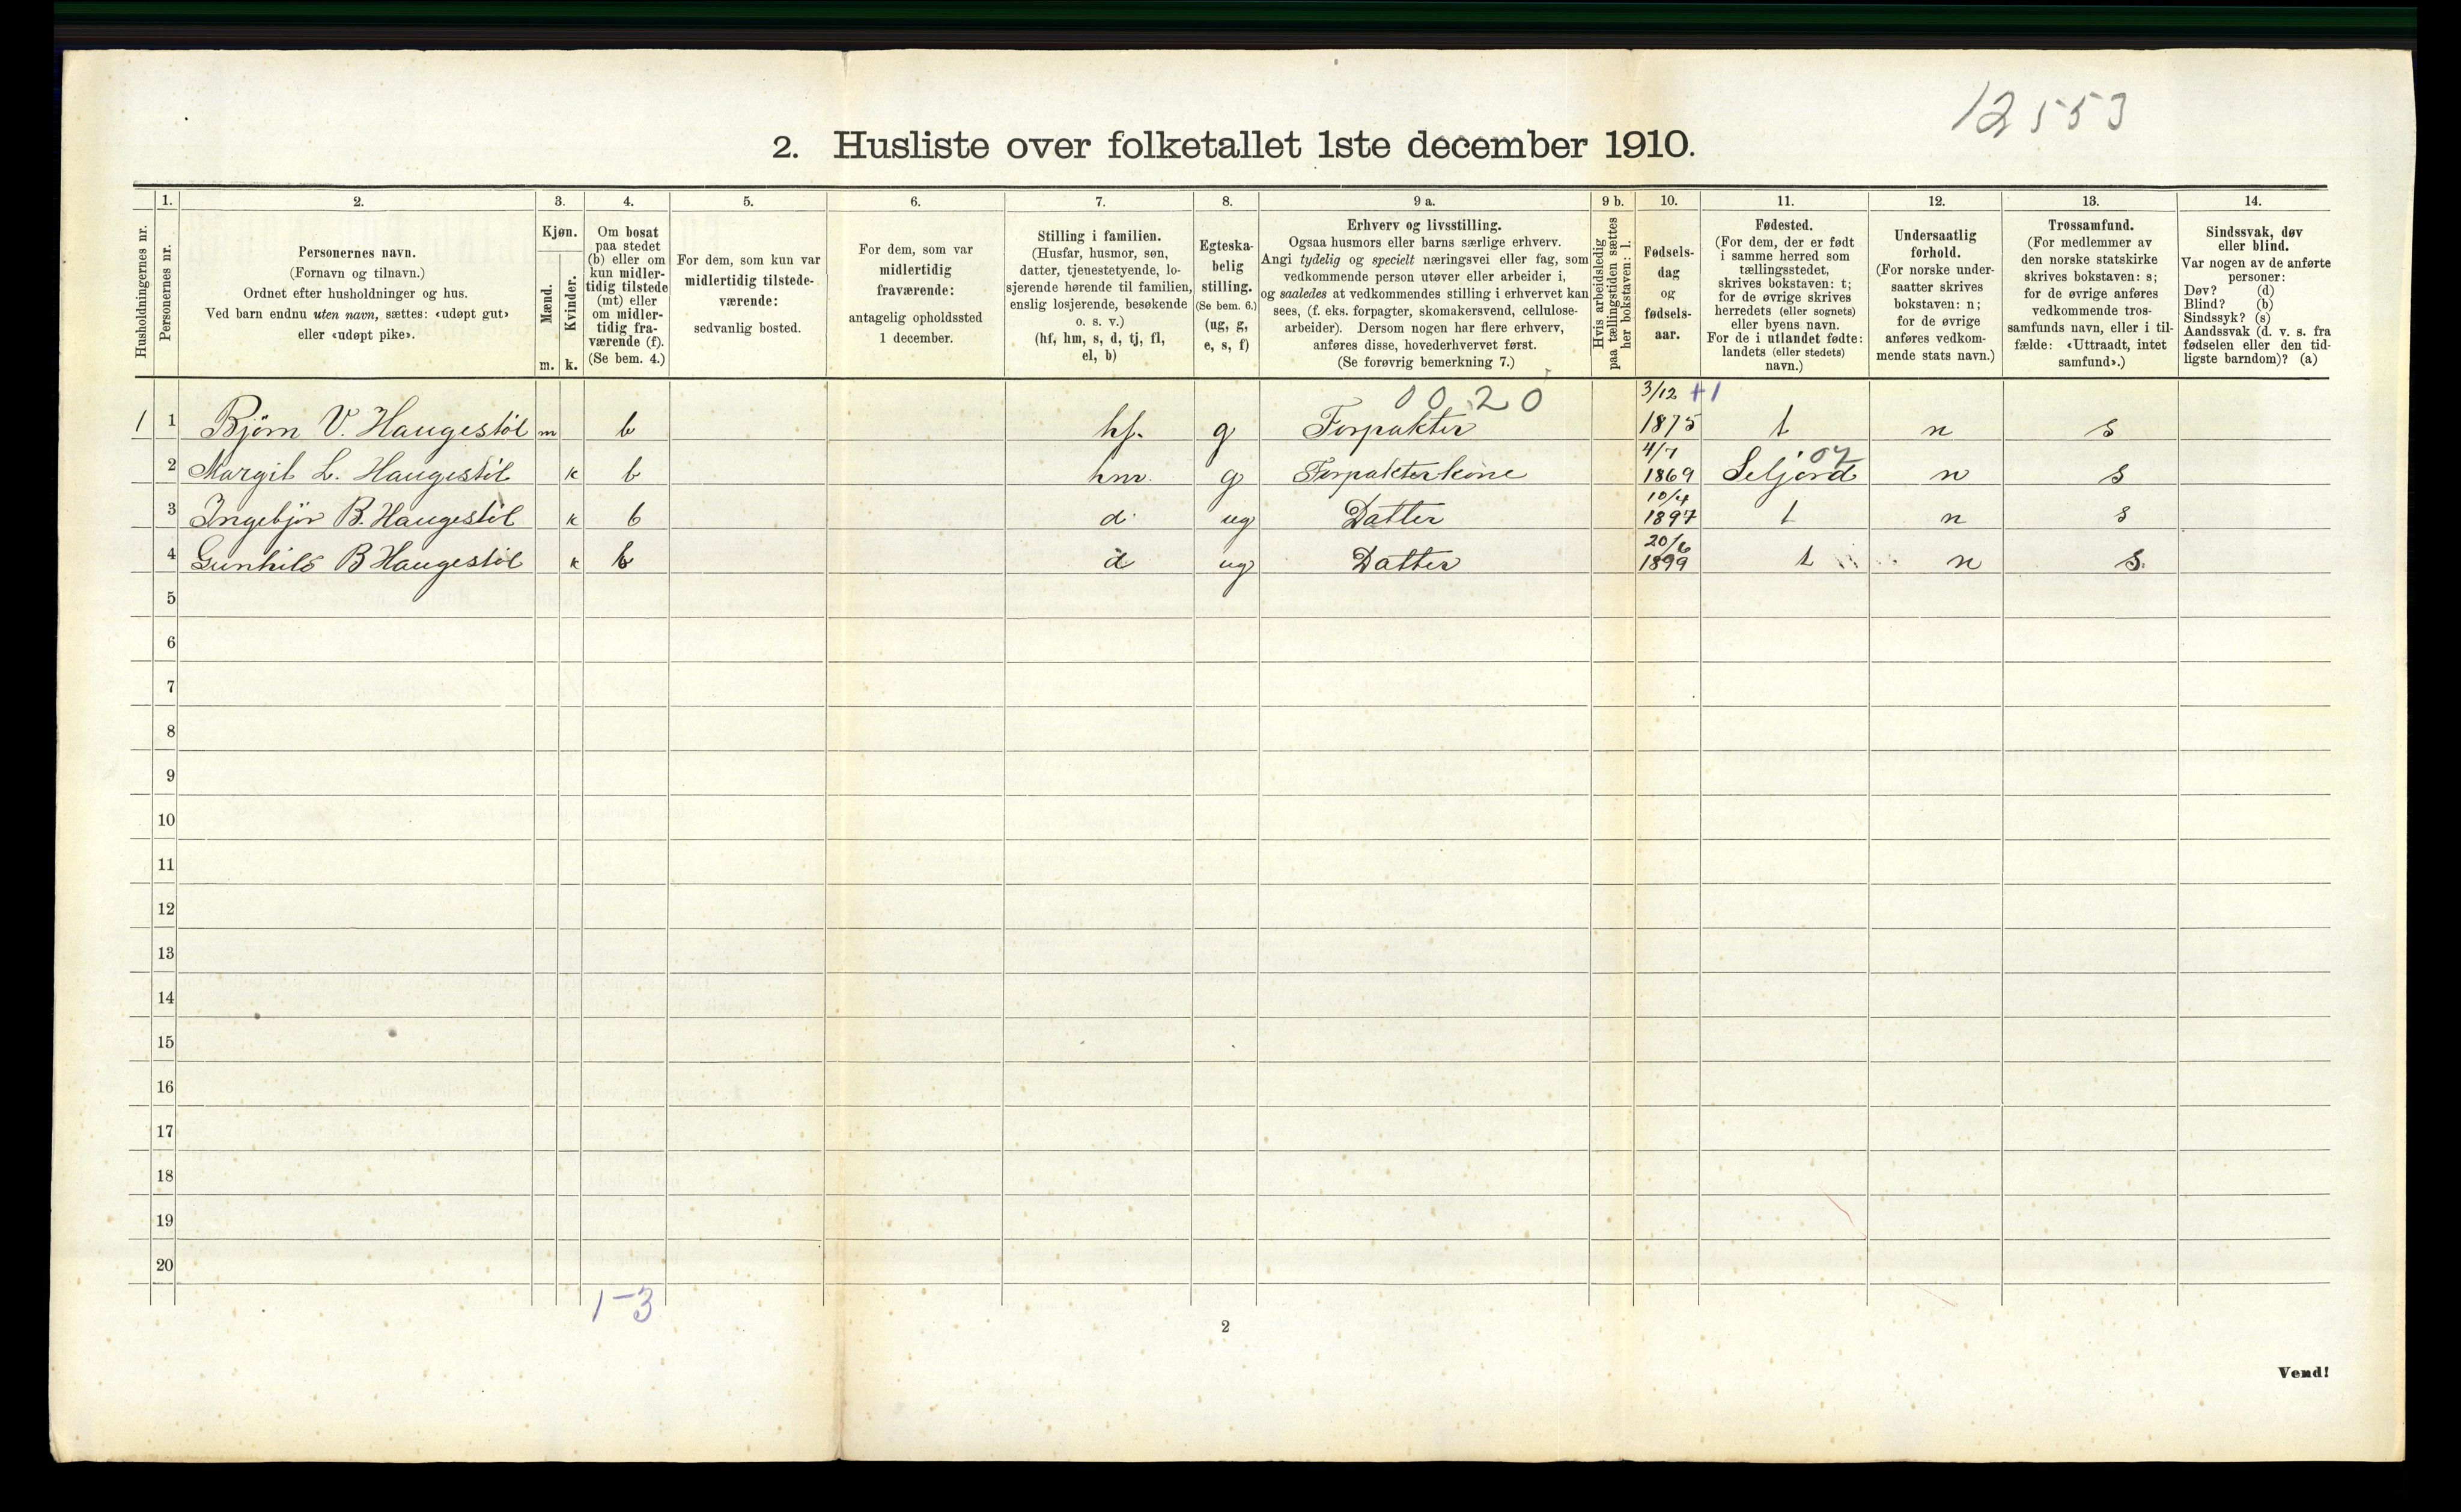 12553
2. Husliste over folketallet 1ste december 1910.
Husholdningernes nr.
1.
Personernes nr.
2.
Personernes navn.
(Fornavn og tilnavn.)
Ordnet efter husholdninger og hus.
Ved barn endnu uten navn, sættes: «udøpt gut»
eller «udøpt pike».
3.
Kjøn.
Mænd.
Kvinder.
m. k.
4.
Om bosat
paa stedet
(b) eller om
kun midler-
tidig tilstede
(mt) eller
om midler-
tidig fra-
værende (f).
(Se bem. 4.)
5.
For dem, som kun var
midlertidig tilstede-
værende:
sedvanlig bosted.
6.
For dem, som var
midlertidig
fraværende:
antagelig opholdssted
1 december.
7.
Stilling i familien.
(Husfar, husmor, søn,
datter, tjenestetyende, lo-
sjerende hørende til familien,
enslig losjerende, besøkende
o. s. v.)
(hf, hm, s, d, tj, fl,
el, b)
8.
Egteska-
belig
stilling.
(Se bem. 6.)
(ug, g,
e, s, f)
9 a.
Erhverv og livsstilling.
Ogsaa husmors eller barns særlige erhverv.
Angi tydelig og specielt næringsvei eller fag, som
vedkommende person utøver eller arbeider i,
og saaledes at vedkommendes stilling i erhvervet kan
sees, (f. eks. forpagter, skomakersvend, cellulose-
arbeider). Dersom nogen har flere erhverv,
anføres disse, hovederhvervet først.
(Se forøvrig bemerkning 7.)
9 b.
Hvis arbeidsledig
paa tællingstiden sættes
her bokstaven: l.
10.
Fødsels-
dag
og
fødsels-
aar.
11.
Fødested.
(For dem, der er født
i samme herred som
tællingsstedet,
skrives bokstaven: t;
for de øvrige skrives
herredets (eller sognets)
eller byens navn.
For de i utlandet fødte:
landets (eller stedets)
navn.)
12.
Undersaatlig
forhold.
(For norske under-
saatter skrives
bokstaven: n;
for de øvrige
anføres vedkom-
mende stats navn.)
13.
Trossamfund.
(For medlemmer av
den norske statskirke
skrives bokstaven: s;
for de øvrige anføres
vedkommende tros-
samfunds navn, eller i til-
fælde: «Uttraadt, intet
samfund».)
14.
Sindssvak, døv
eller blind.
Var nogen av de anførte
personer:
Døv? (d)
Blind? (b)
Sindssyk? (s)
Aandssvak (d. v. s. fra
fødselen eller den tid-
ligste barndom)? (a)
0020 3/12 +1
1 1 Bjørn V. Haugestøl m b hf. g Forpakter 1875 t n s
4/7 07
2 Margit L. Haugestøl k b hm. g Forpakterkone 1869 Seljord n s
10/4
3 Ingebjør B. Haugestøl k b d ug Datter 1897 t n s
20/6
4 Gunhild B Haugestøl k b d ug Datter 1899 t n s.
5
6
7
8
9
10
11
12
13
14
15
16
17
18
19
20
1-3
2
Vend!